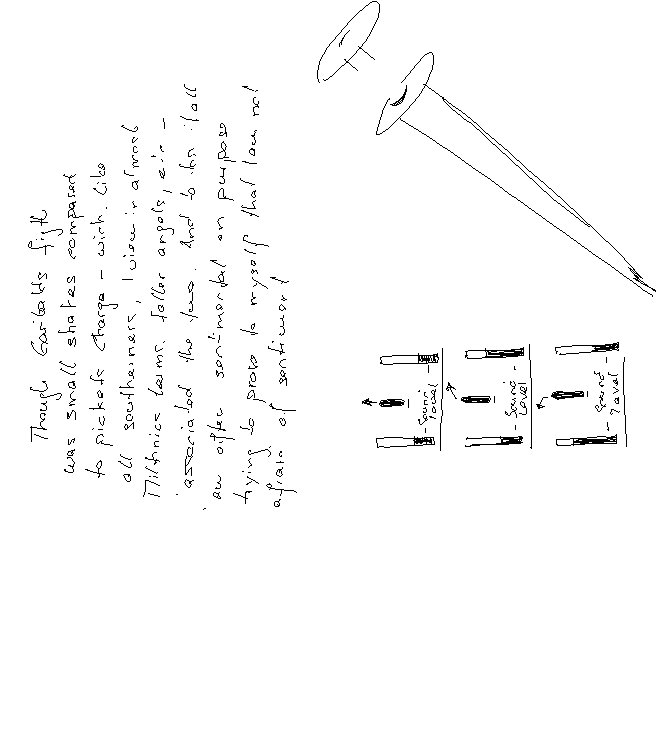 Though Garibalds figth
was small shates compared
to pickets charge - wich. Like
all southerners, I view in almost
Miltinics terms. faller angels, etc -
associated the two. And to top it all
I am often sentimental on purpose
trying to prove to myself that I am not
afraid of sentiment
- Sound -
Level
- Sound -
Level
- Sound -
Level